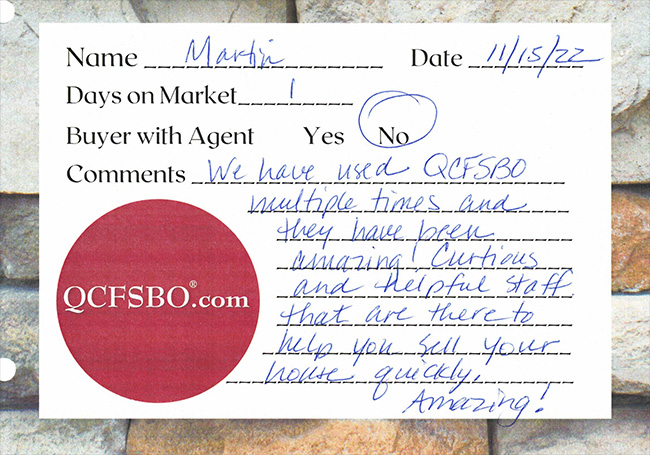 Name Martin Date 11/15/22
Days on Market 1
Buyer with Agent Yes No
Comments We have used QCFSBO
multiple times and
they have been
amazing! Curtious
and helpful staff
that are there to
help you sell your
house quickly.
Amazing!
QCFSBO.com®